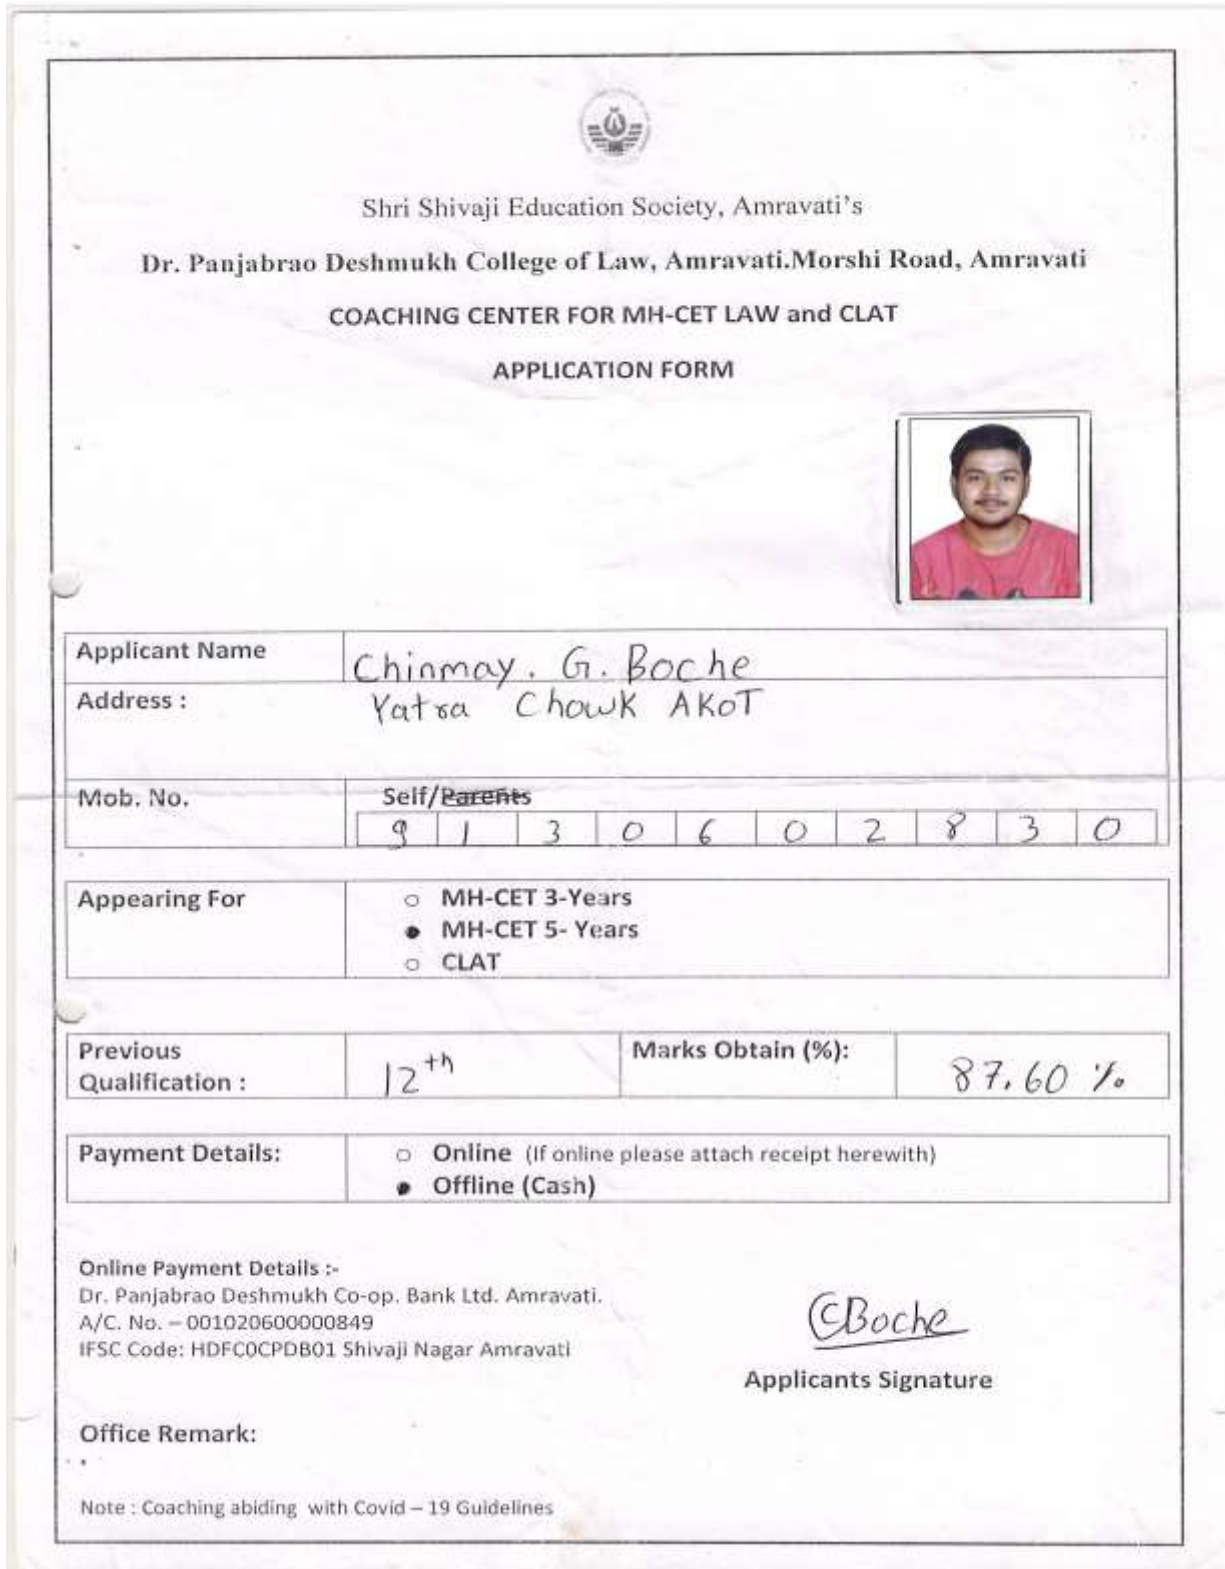 Shri Shivaji Education Society, Amravati's
Dr. Panjabrao Deshmukh College of Law, Amravati.Morshi Road, Amravati
COACHING CENTER FOR MH-CET LAW and CLAT
APPLICATION FORM
Applicant Name Chinmay. G. Boche
Address : Yatra Chowk AKOT
Mob. No. Self/Parents
9 1 3 0 6 0 2 8 3 0
Appearing For ○ MH-CET 3-Years
● MH-CET 5- Years
○ CLAT
Previous
Qualification : 12th Marks Obtain (%): 87.60 %
Payment Details: ○ Online (If online please attach receipt herewith)
● Offline (Cash)
Online Payment Details :-
Dr. Panjabrao Deshmukh Co-op. Bank Ltd. Amravati.
A/C. No. – 001020600000849
IFSC Code: HDFC0CPDB01 Shivaji Nagar Amravati
CBoche
Applicants Signature
Office Remark:
Note : Coaching abiding with Covid – 19 Guidelines